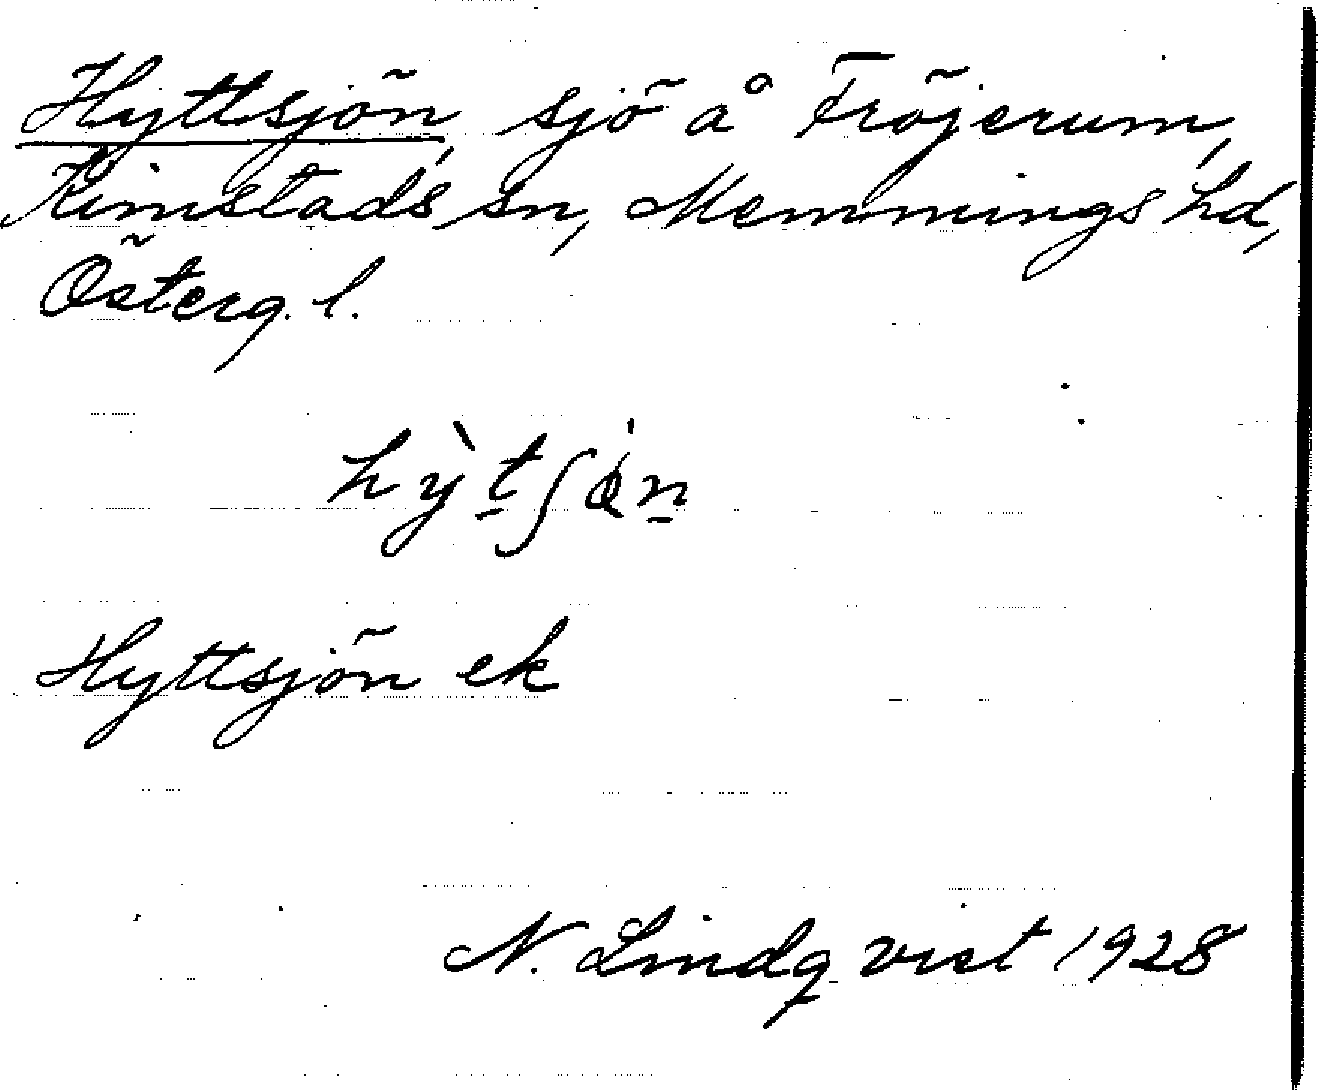 Hyttsjön, sjö å Fröjerum,
Kimstads sn, Memmings hd,
Österg. l.
hỳt̠ʃǿn̠
Hyttsjön ek
N. Lindqvist 1928